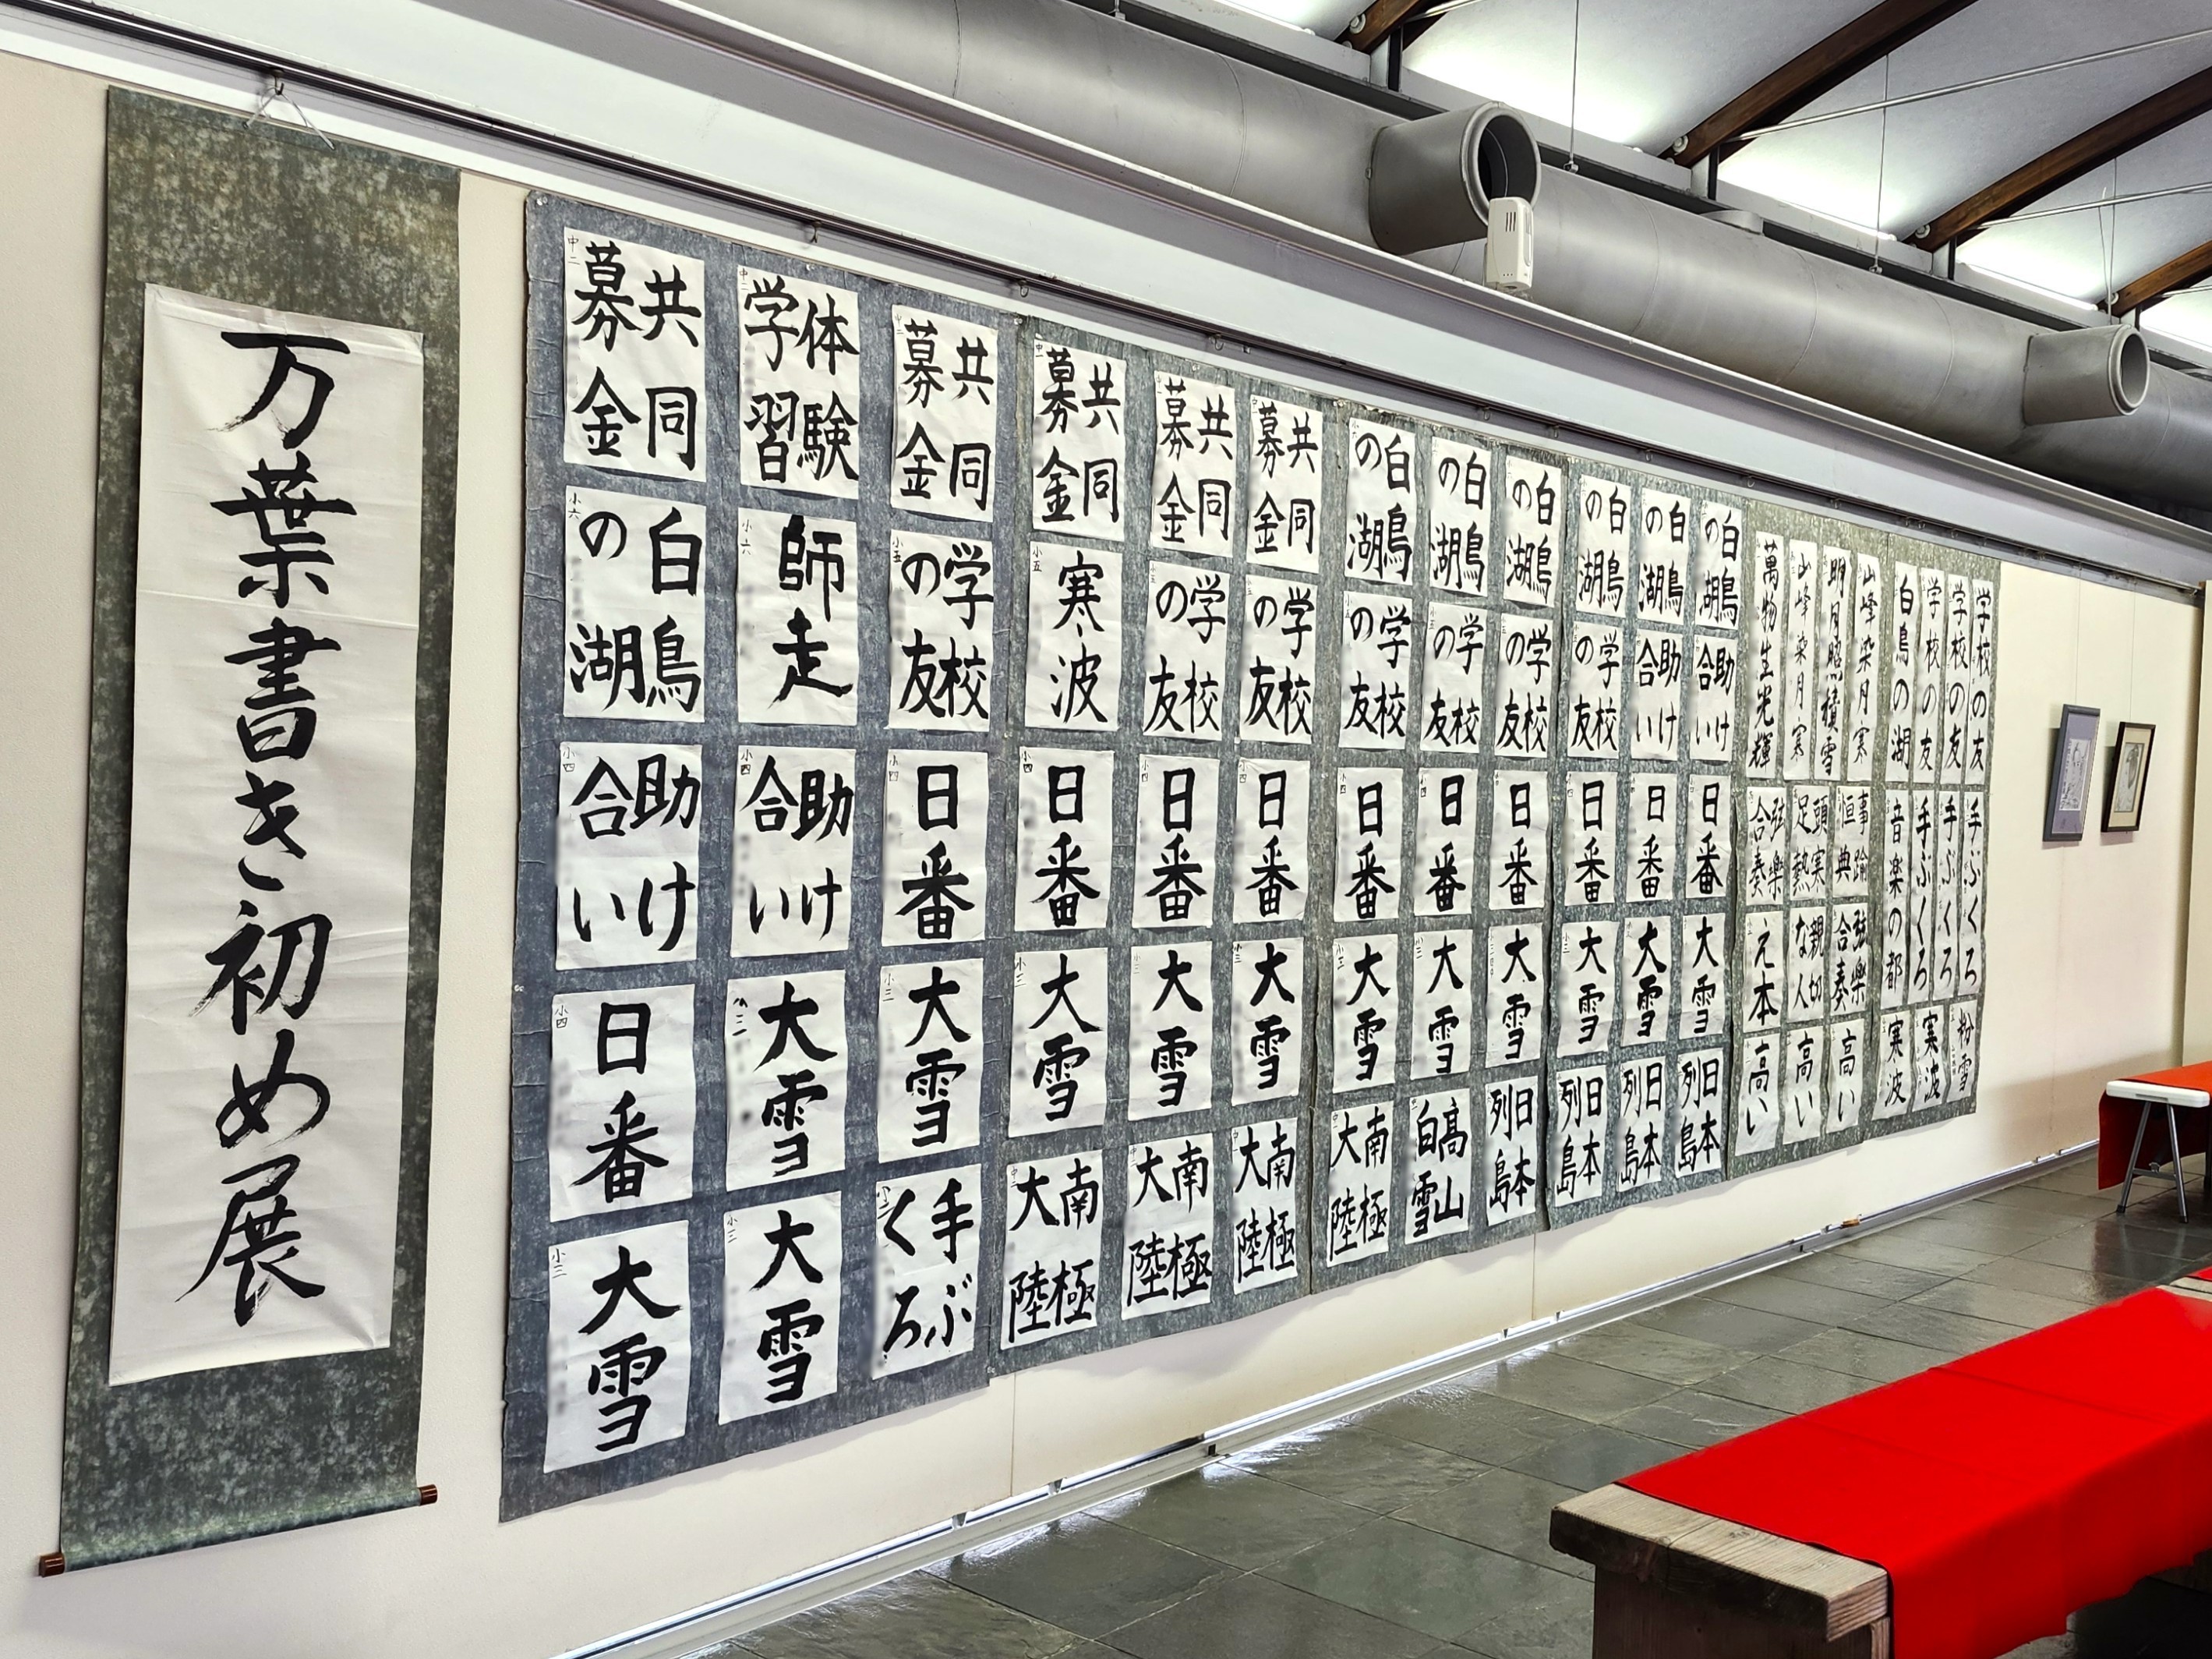 万葉書き初め展
中二
共同
募金
中二
体験
学習
中二
共同
募金
中一
共同
募金
共同
募金
共同
募金
白鳥
の湖
白鳥
の湖
白鳥
の湖
白鳥
の湖
白鳥
の湖
白鳥
の湖
小六
白鳥
の湖
小六
師走
小五
学校
の友
小五
寒波
学校
の友
学校
の友
学校
の友
学校
の友
学校
の友
学校
の友
助け
合い
助け
合い
小四
助け
合い
小四
助け
合い
小四
日番
小四
日番
小四
日番
日番
日番
日番
日番
日番
日番
日番
小四
日番
大雪
小三
大雪
小三
大雪
大雪
小三
大雪
大雪
大雪
大雪
大雪
大雪
大雪
小三
大雪
小三
大雪
手ぶ
くろ
南極
大陸
南極
大陸
南極
大陸
南極
大陸
高山
白雪
日本
列島
日本
列島
日本
列島
日本
列島
萬物生光輝
山峰染月寒
明月照積雪
山峰染月寒
白鳥の湖
学校の友
学校の友
学校の友
弦楽
合奏
頭寒
足熱
事諭
恒典
元本
親切
な人
弦楽
合奏
高い
高い
高い
音楽の都
手ぶくろ
手ぶくろ
手ぶくろ
寒波
寒波
粉雪